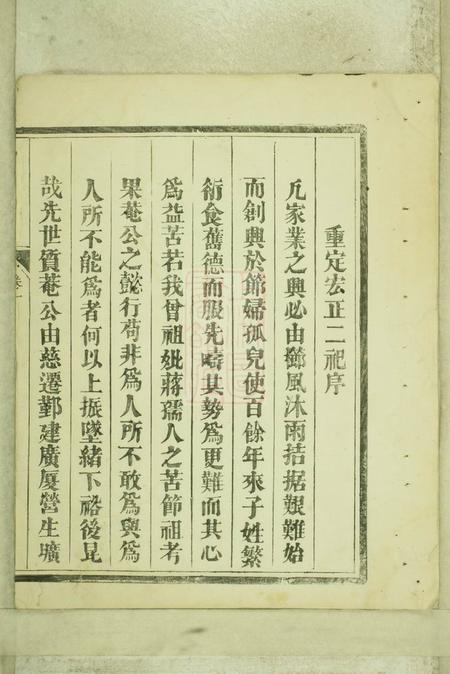 重定宏正二祀序
凡家業之興必由櫛風沐雨拮据艱難始
而創興於節婦孤兒使百餘年來子姓繁
衍食舊德而服先疇其勢爲更難而其心
爲益苦若我曾祖妣蔣孺人之苦節祖考
果菴公之懿行苟非爲人所不敢爲與爲
人所不能爲者何以上振墜緒下裕後昆
哉先世質菴公由慈遷鄞建廣厦營生壙